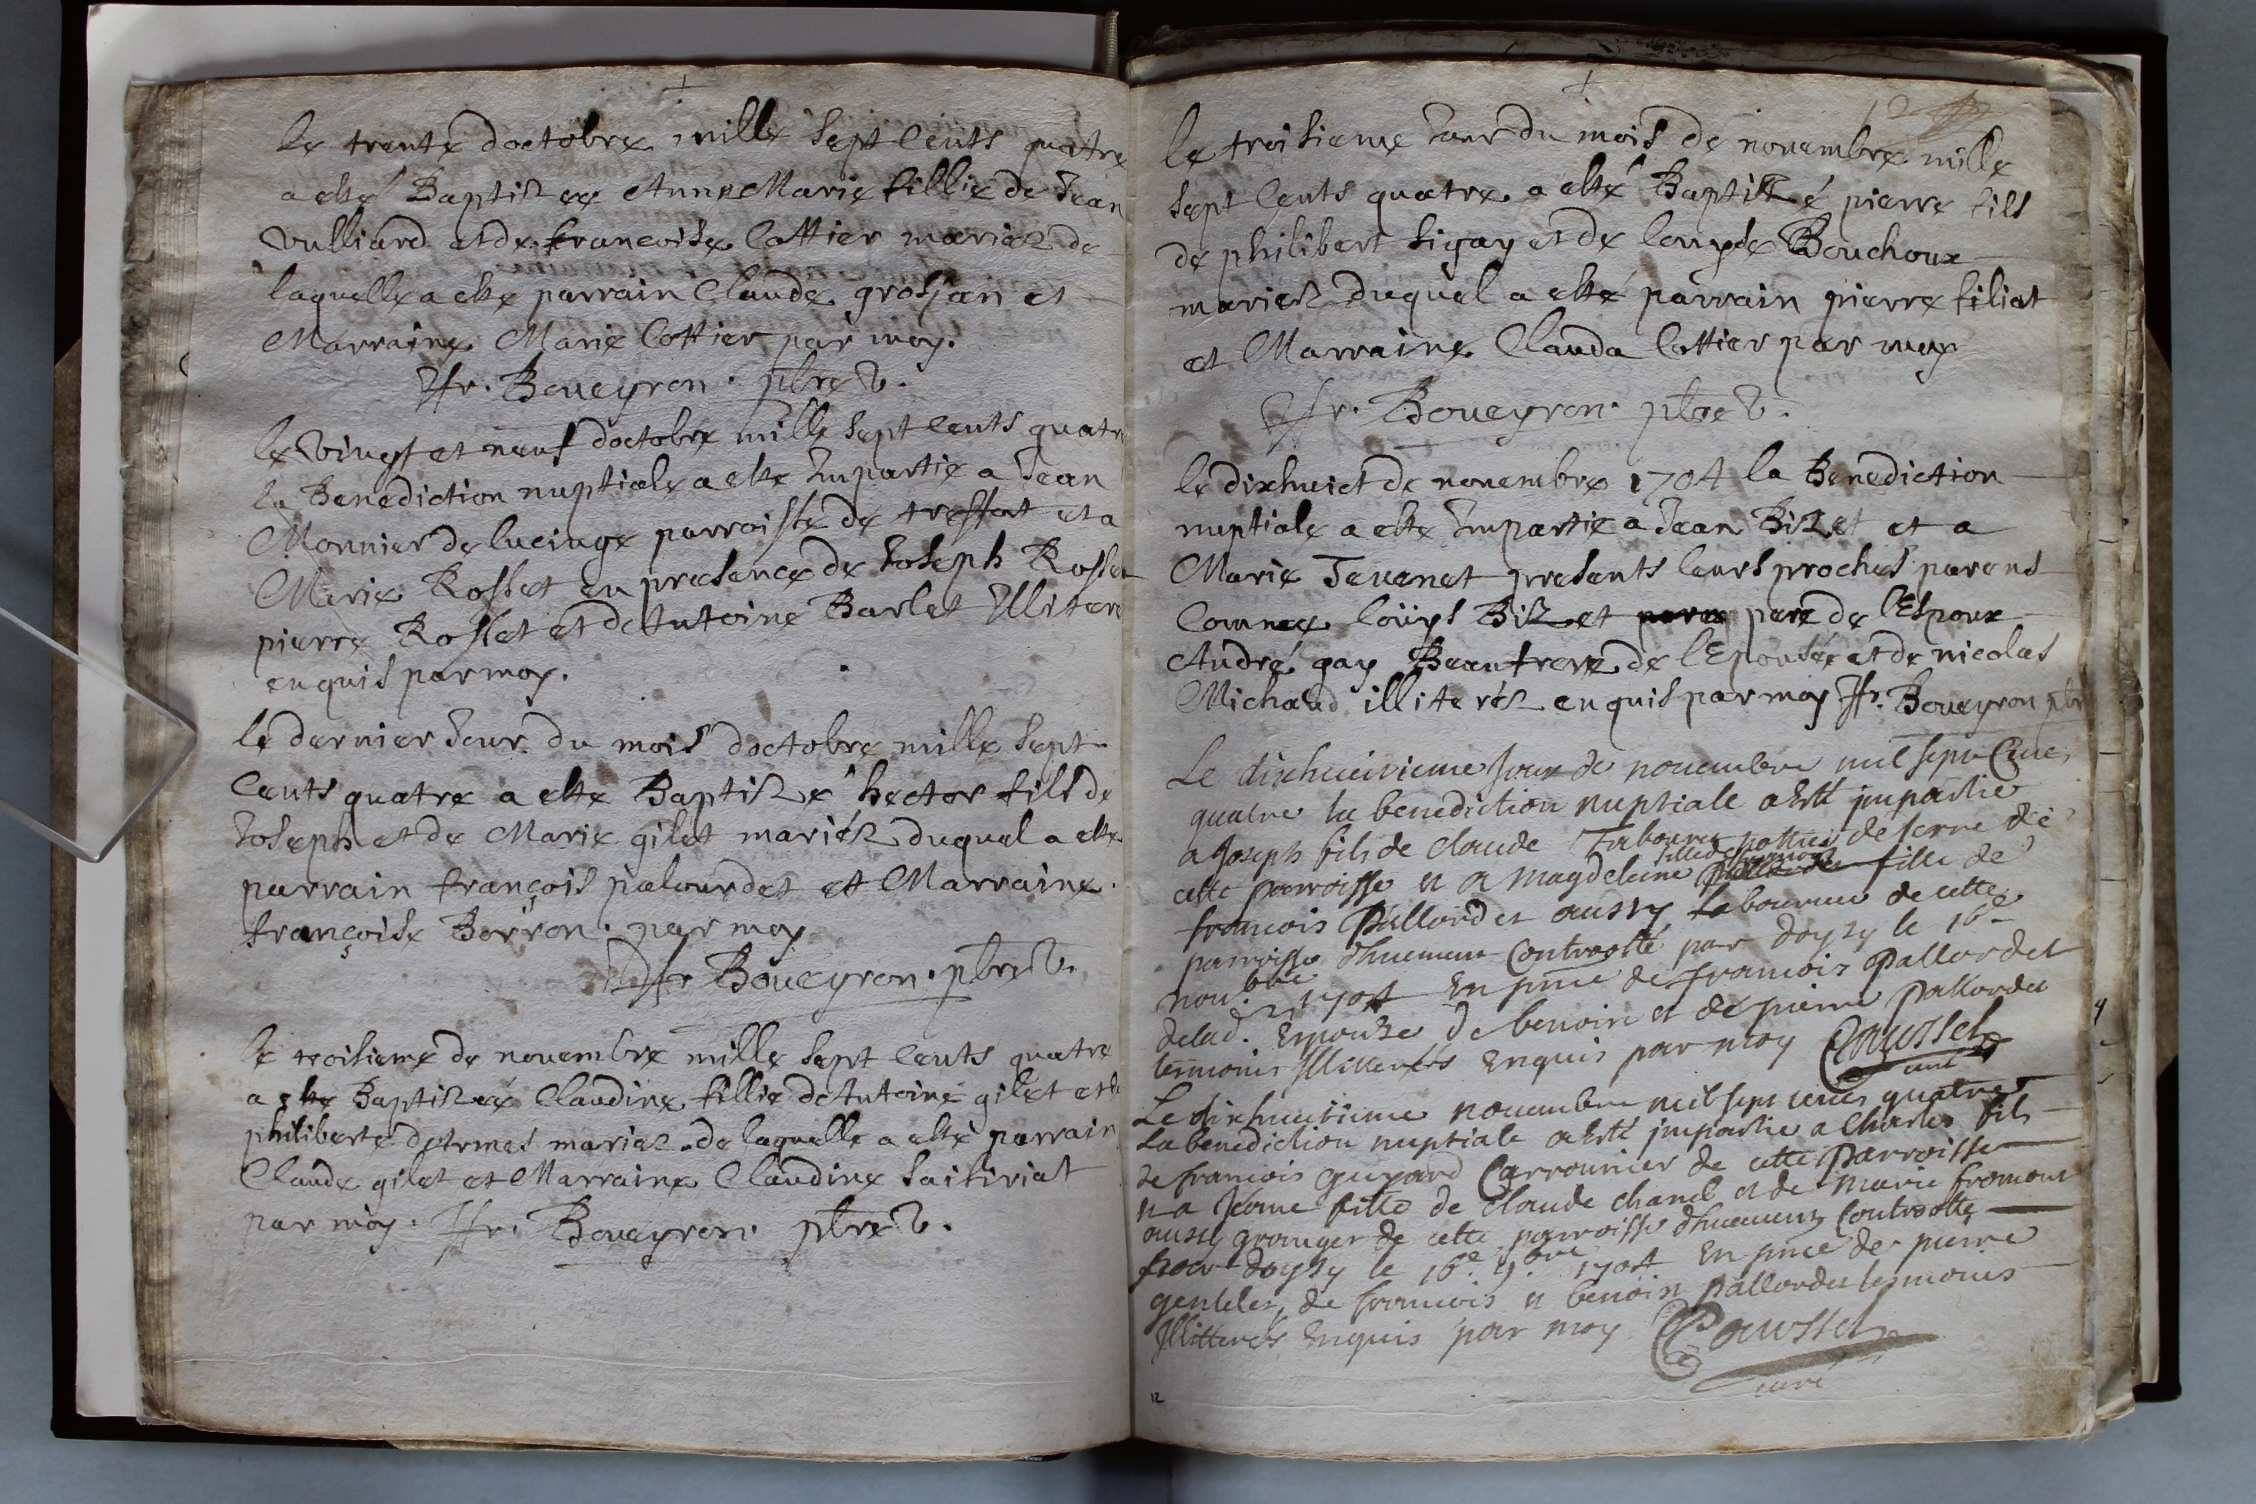 le trente doctobre mille sept cents quatre
a esté Baptizée Anne Marie fillie de Jean
vulliard et de francoise Cottier mariez de
laquelle a esté parrain Claude grosjan et
Marraine Marie Cottier par moy.
ffr. Boueyron. pbre V.
le vingt et neuf doctobre mille sept cents quatre
la Benediction nuptiale a esté Impartie a Jean
Monnier de lucinge parroisse de treffort et a
Marie Rosset en presence de Joseph Rosset
pierre Rosset et de Antoine Barlet Illiteré
enquis par moy.
le dernier Jour du mois doctobre mille sept
cents quatre a esté Baptizé hector fils de
Joseph et de Marie gilet mariéz duquel a esté
parrain françois palourdet et Marraine
françoise Borron. par moy
ffr Boueyron. pbre V.
le troisieme de novembre mille sept cents quatre
a esté Baptizeé Claudine fillie de Antoine gilet et de
philiberte desrmes mariez de laquelle a esté parrain
Claude gilet et Marraine Claudine
par moy. ffr. Boueyron. pbre V.
12
le troisieme Jour du mois de novembre mille
sept cents quatre a esté Baptizé pierre fils
de philibert sigay et de louyse Bouchoux
mariez duquel a esté parrain pierre filiat
et Marraine Clauda Cottier par moy
ffr. Boueyron. pbre V.
le dixhuict de novembre 1704 la Benediction
nuptiale a esté Impartie a Jean Bizet et a
Marie Tevenet presents leurs proches parens
Comme loüys Bizet pere de l'Espoux
André gay Beaufrere de l'Epousée et de nicolas
Michaud illiteréz enquis par moy ffr. Boueyron pbr
Le dixhuitieme Jour de novembre mil sept cens
quatre la benediction nuptiale a esté impartie
a Joseph fils de claude Taboures de serve de
cette parroisse et a magdeleine fille de
francois Pallordet aussy laboureur de cette
parroisse dhuement Controollé par doysy le 16e
nou.bre 1704 En pnce de francois Pallordet
delad. Espouze de benoin et de pierre Pallordet
tesmoins Illiterés Enquis par moy Coussel
curé
Le dixhuitieme novembre mil sept cens quatre
La benediction nuptiale a esté impartie a Charles fils
de francois guyard Carronnier de cette Parroisse
et a Jeanne fille de Claude chanel et de Marie fromont
aussy granger de cette parroisse dhuement Controollé
par doysy le 16e 9.bre 1704 En pnce de pierre
genlelet, de francois et benoin Pallordet tesmoins
Illitterés Enquis par moy Coussel
curé
12